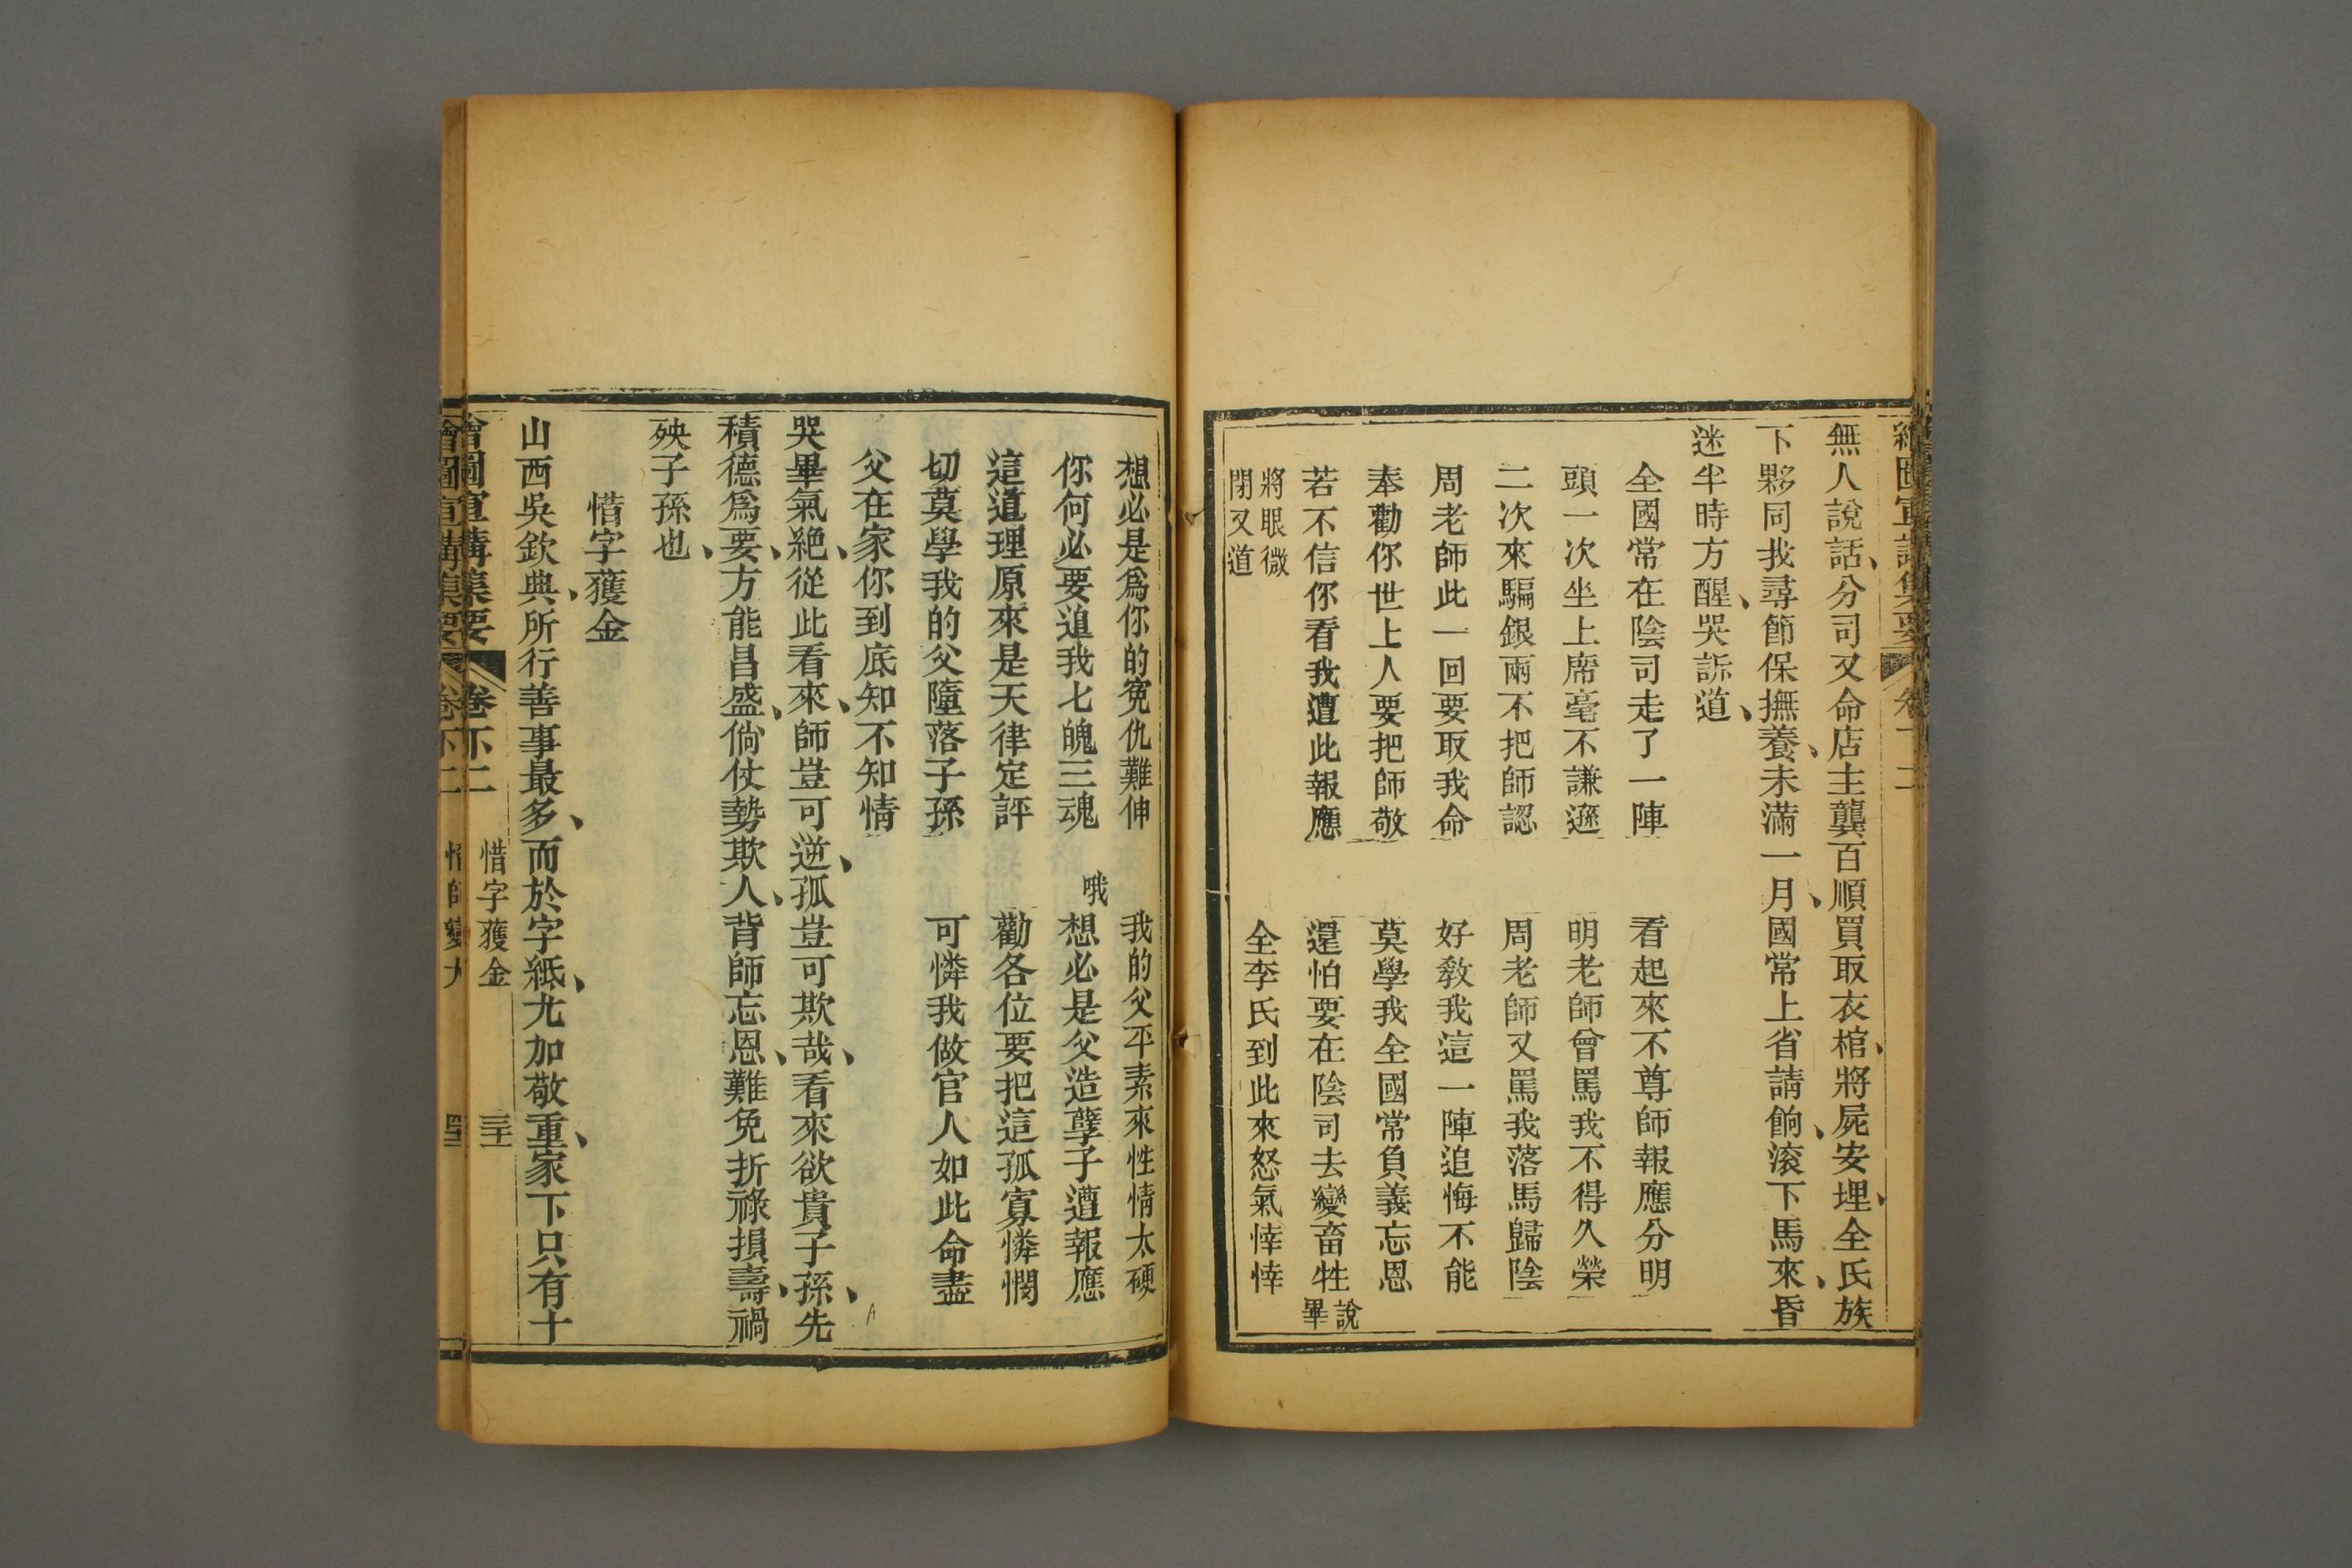 無人說話、分司又命店主龔百順買取衣棺、將屍安埋、全氏族
下夥同我尋節保撫養、未滿一月、國常上省請餉、滚下馬來、昏
迷半時方醒、哭訴道、
全國常在陰司走了一陣　看起來不尊師報應分明
頭一次坐上席毫不謙遜　明老師曾罵我不得久榮
二次來騙銀兩不把師認　周老師又罵我落馬歸陰
周老師此一回要取我命　好教我這一陣追悔不能
奉勸你世上人要把師敬　莫學我全國常負義忘恩
若不信你看我遭此報應　還怕要在陰司去變畜牲 說畢
將眼微閉又道　全李氏到此來怒氣悻悻
想必是為你的寃仇難伸　我的父平素來性情太硬
你何必要追我七魄三魂　哦想必是父造孽子遭報應
這道理原來是天律定評　勸各位要把這孤寡憐憫
切莫學我的父墮落子孫　可憐我做官人如此命盡
父在家你到底知不知情
哭畢氣絕、從此看來、師豈可逆、孤豈可欺哉、看來欲貴子孫、先
積德為要、方能昌盛、倘仗勢欺人、背師忘恩、難免折祿損壽、禍
殃子孫也、
惜字獲金
山西吳欽典、所行善事最多、而於字紙、尤加敬重、家下只有十
會圖宣講集要　卷下二　惜字獲金